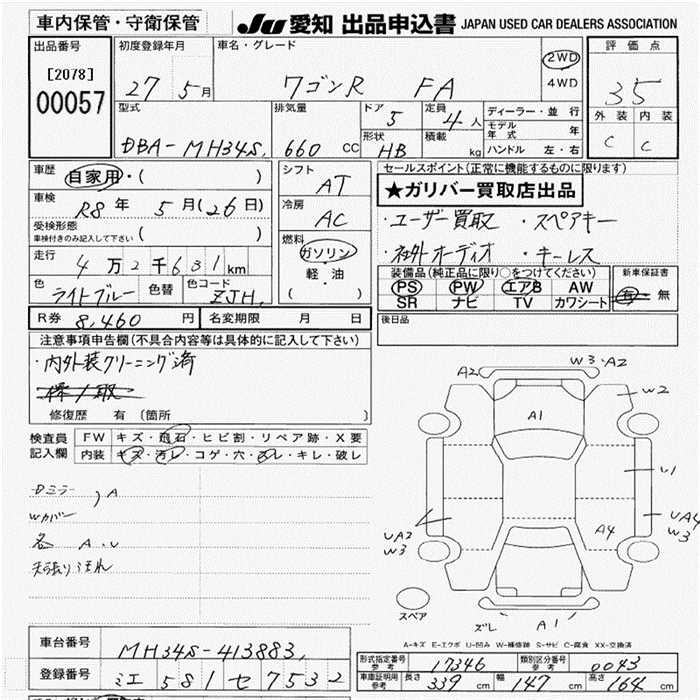 車内保管・守衛保管
JU 愛知 出品申込書 JAPAN USED CAR DEALERS ASSOCIATION
出品番号
[2078]
00057
初度登録年月
27 5月
車名・グレード
ワゴンR FA
2WD
4WD
評価点
3.5
外装 内装
C C
型式
DBA-MH34S
排気量
660 CC
ドア
5
定員
4人
形状
HB
積載
kg
ディーラー・並行
モデル年式 年
ハンドル 左・右
車歴
自家用・( )
車検
R8年 5月(26日)
受検形態
車検付きのみ記入して下さい ( )
走行
4万2千631km
色
ライトブルー
色替
色コード
ZJH
シフト
AT
冷房
AC
燃料
ガソリン・
軽・油
( )
セールスポイント(正常に機能するものに限ります)
★ガリバー買取店出品
・ユーザー買取 ・スペアキー
・社外オーディオ ・キーレス
装備品(純正品に限り○をつけてください)
PS PW エアB AW
SR ナビ TV カワシート
新車保証書
有・無
R券 8,460円
名変期限 月 日
後日品
注意事項申告欄(不具合内容等は具体的に記入して下さい)
・内外装クリーニング済
修復歴 有 〔箇所 〕
検査員記入欄
FW キズ・飛石・ヒビ割・リペア跡・X要
内装 キズ・汚レ・コゲ・穴・スレ・キレ・破レ
Dミラー
Wカバー ) A
各 A.U
天張り汚れ
A2
W3・A2
A1
W2
U1
UA4
W3
UA2
W3
A4
スペア
ズレ
A1
A-キズ E-エクボ U-凹み W-補修跡 S-サビ C-腐食 XX-交換済
車台番号
MH34S-413883
登録番号
581 セ 7532
形式指定番号
参考
17346
類別区分番号
参考
0043
車庫証明用
参考
長さ 339cm 幅 147cm 高さ 164cm